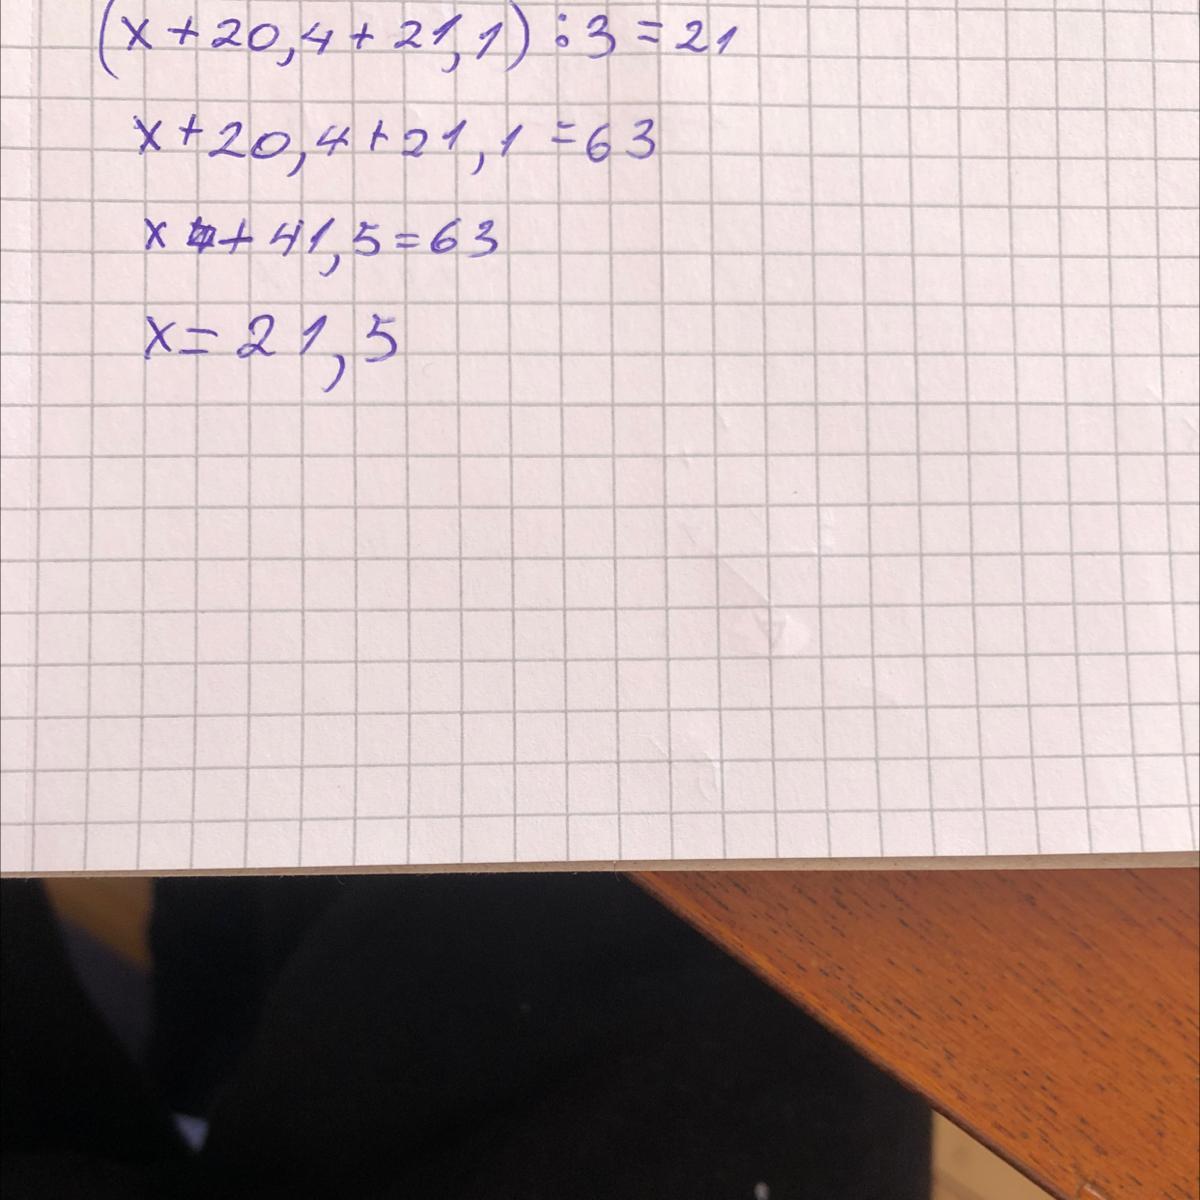 (x+20,4+21,1):3=21
x+20,4+21,1=63
x+41,5=63
x=21,5